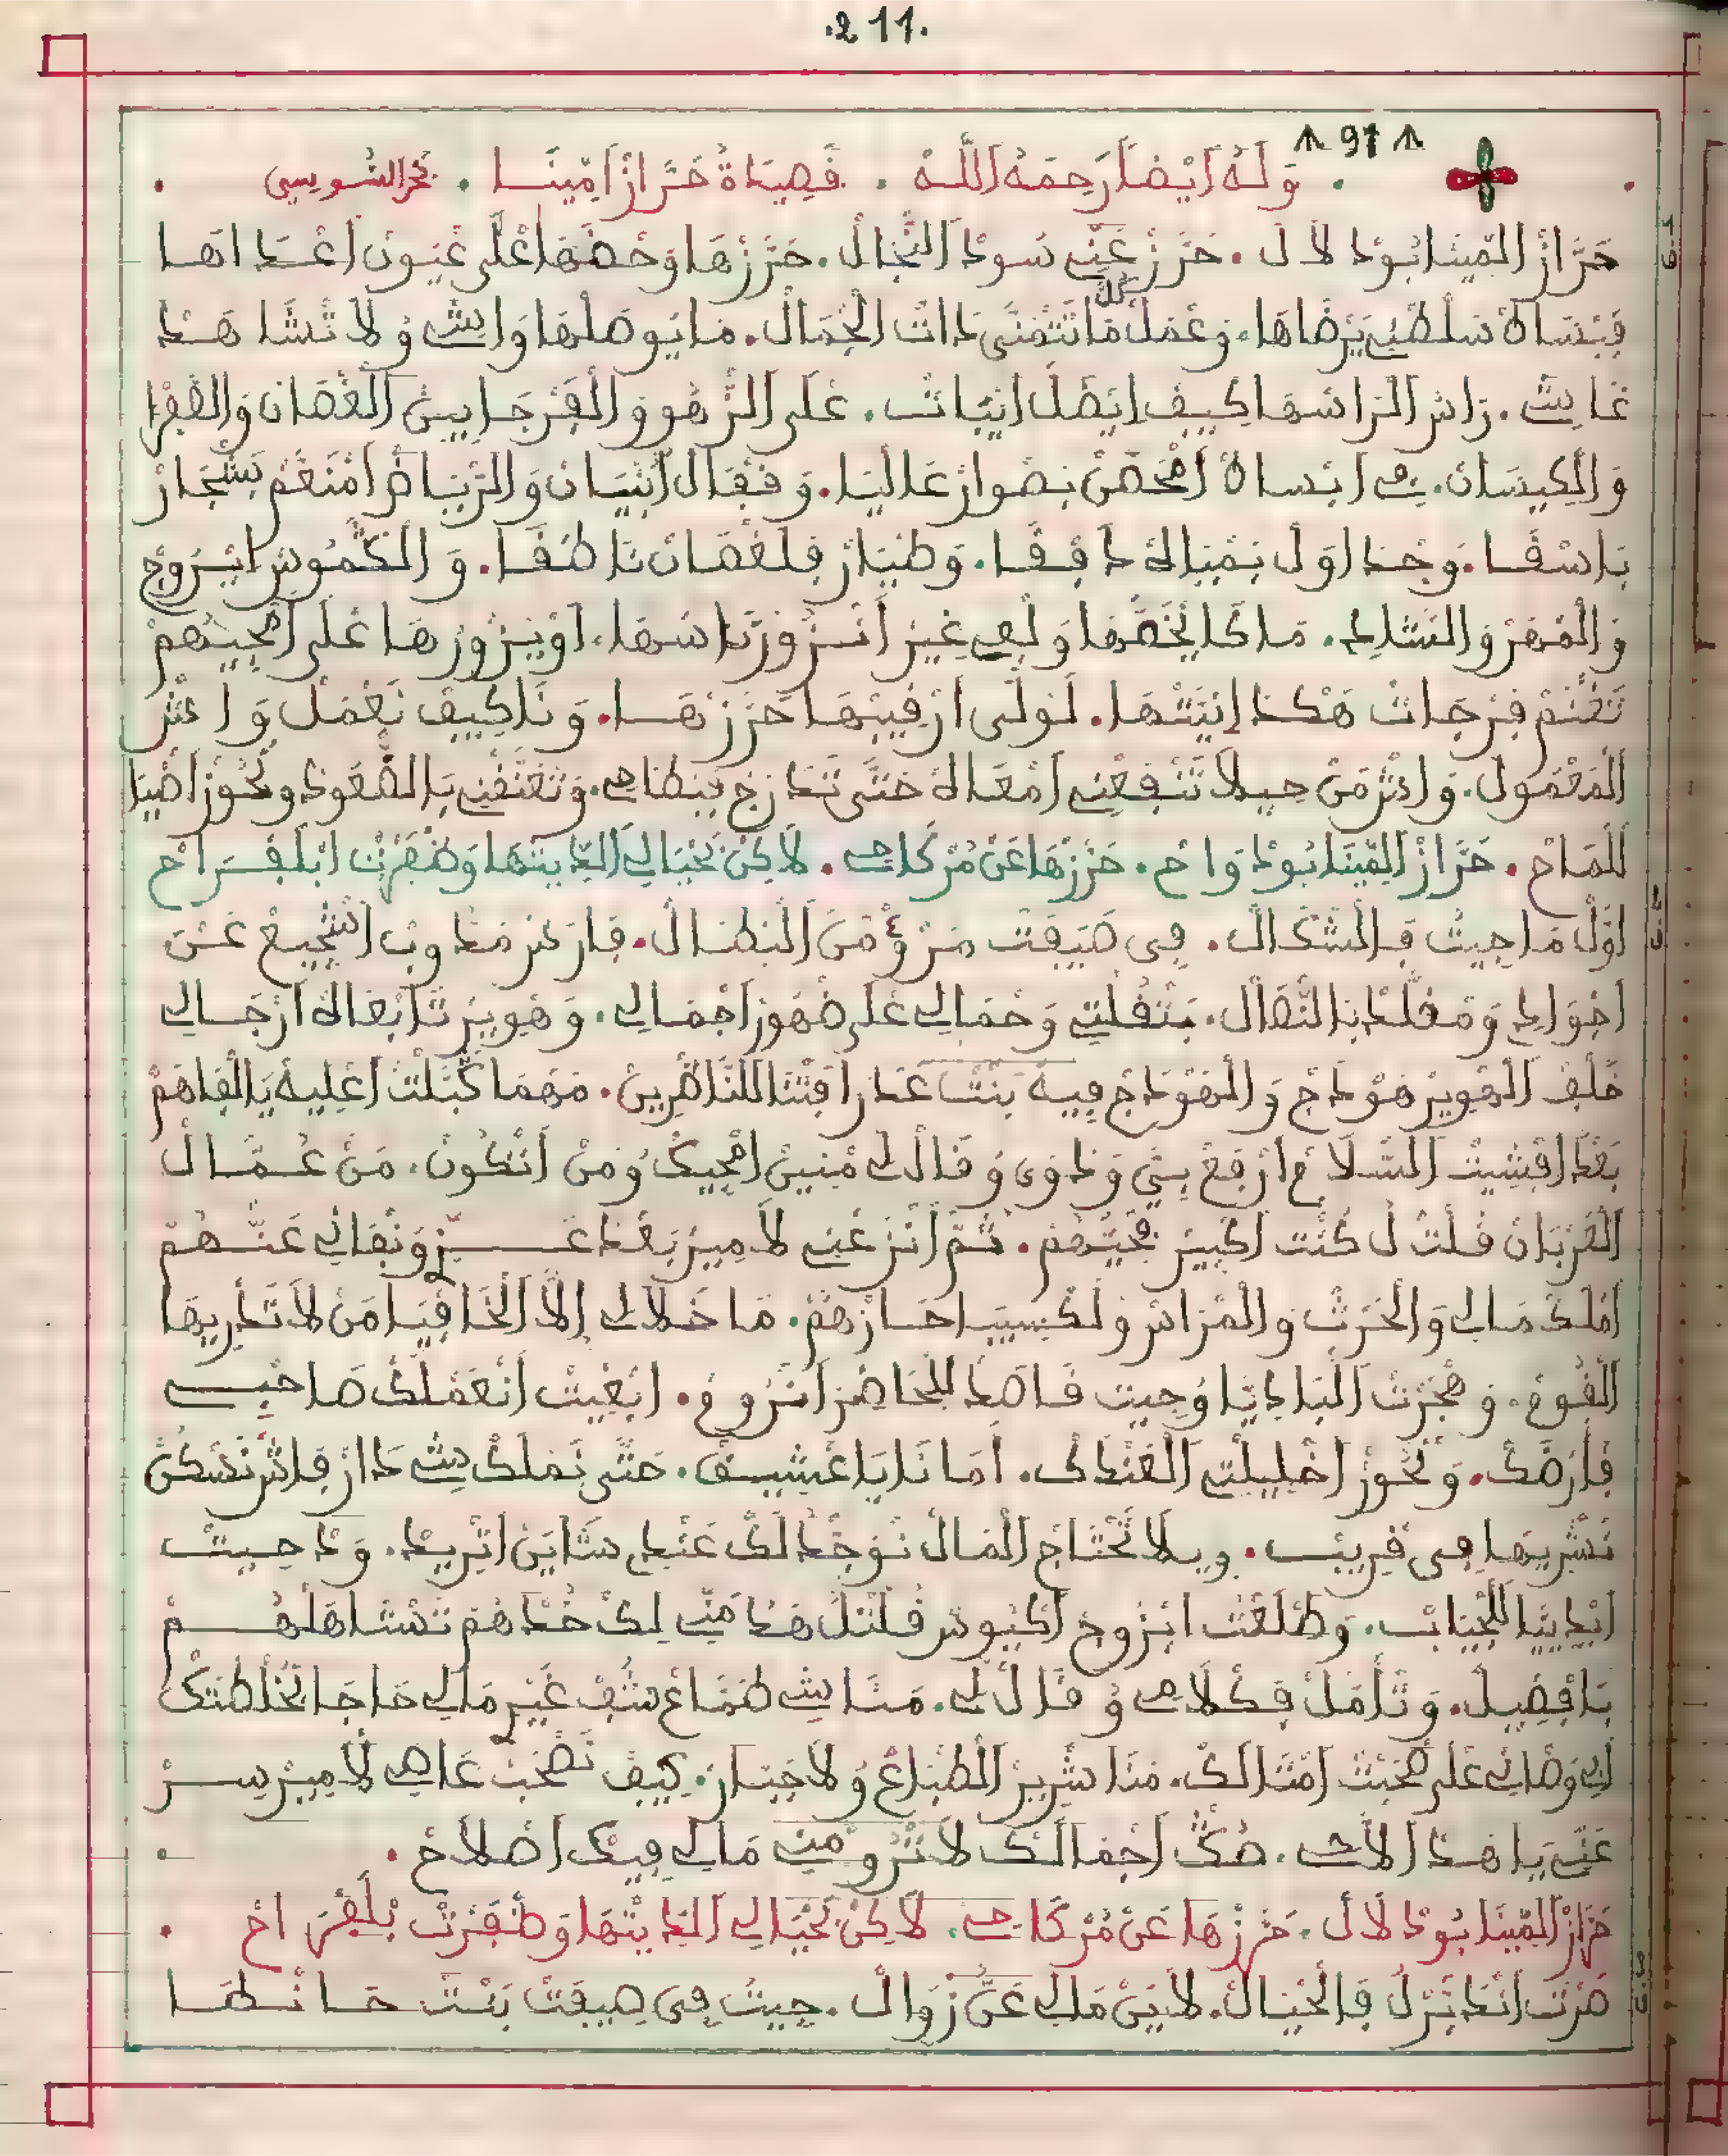 .211.
97
وَلَهُ اَيْضاً رَحِمَهُ اللَّهْ . فَصِيدَةْ حَرَّازْ اَمِّينَا . بحر السويسي
حَرَّازْ اَلمِّينَا بُودْلَالْ . حَرَّزْ عَنِّي سُودْ اَلنّْجَالْ . حَرَّزْهَا وَحْضَهَا عْلَى عْيُونْ اَعْدَاهَا
فِبْسَاطْ سَلْطَنِي يَرْضَاهَا . وَعْمَلْ كُلّْ مَا تَتْمَنَّى ذَاتْ اَلْجْمَالْ . مَا يُوصَلْهَا وَاشِي وُلَا تْشَاهَدْ
غَاشِي . رَاسْ اَلرَّاسْهَا كِيفْ اِيظَلّْ اِيبَاتْ . عْلَى اَلزّْهُو وَالْفَرْجَا بِينْ اَلْغْصَانْ وَالْقْرَا
وَالْكِيسَانْ . فِي اَبْسَاطْ اَمْحَصَّنْ بَصْوَارْ عَالْيَا . وَقْفَالْ اَثْيَانْ وَالرّْيَاضْ اَمْنَعَّمْ بَشْجَارْ
بَاسْقَا . وَجْدَاوَلْ بَمْيَاهْ دَافْقَا . وَطْيَارْ فِلَغْصَانْ نَاطْقَا . وَالْكْمُوسْ اِيْرُوجْ
وَالْمْهَرْ وَالنّْشَادْ . مَا كَا يْخَصّْهَا وَلْفِي غِيرْ اَنْزُورْ نَاسْهَا . اَوْ يْزُورْهَا عْلَى اَمْحِبّْهُمْ
تَغْنَمْ فِرْجَاتْ هَكْذَا اِنِيّتْهَا . لَوْلَى اَرْقِيبْهَا حَرَّزْهَا . وَنَا كِيفْ نَعْمَلْ وَاعْشَرْ
اَلْمَعْمُولْ . وَاشْ مَنْ حِيلَا تَنْفَعْنِي اَمْعَاهْ حَتَّى تَدْرَجْ فِبْطَاحِي . وَتْعَنَّقْنِي بَالصّْعُودْ وَنْحُوزْ اَضْيَا
لَلْمَاحْ . حَرَّازْ اَلمِّينَا بُودْوَاحْ . حَرَّزْهَا عَنْ مُرْكَاحِي . لَاكِنْ بَحْيَالِي اَلدِّيتْهَا وَظْفَرْتْ اَبْلَفْرَاحْ
اَوَّلْ مَا جِيتْ فَالشّْكَالْ . فِي صِيفَتْ مَرْوْ مَنْ اَلْبْطَالْ . فَارَسْ مَنْدُوبْ اَشْجِيعْ عَنْ
اَجْوَادِي وَمْقَلَّدْ بَالنّْصَالْ . بَثْقَلْتِي وَحْمَالِي عْلَى ظْهُورْ اَجْمَالِي . وَهْوِيرْ تَابْعَاهْ اَرْجَالِي
خَلْفْ اَلْهْوِيرْ هَوْدَجْ وَالْهَوْدَجْ فِيهْ بَنْتْ عَدْرَا فَتْنَا لَلنَّاظْرِينْ . مَهْمَا كَبَّلْتْ اَعْلِيهْ يَا اَلْفَاهَمْ
بَعْدْ اَفْشِيتْ اَلسّْلَامْ اَرْفَعْ بِيَّ وَدْوَى وْقَالْ لِي مْنِينْ اَمْجِيكْ وُمَنْ اَنْتَكُونْ . مَنْ عُمَّالْ
اَلْعَرْبَانْ قَلْتْ لُ كُنْتْ اَكْبِيرْ نَجْعْهُمْ . ثُمَّ اَنْزَعْنِي لَامِيرْ بَعْدْ عَزِّي وَنْفَانِي عَنّْهُمْ
اَمْلَكْ مَالِي وَالْحَرْثْ وَالْمْرَاسْ وَلَكْسِيبَا حَازْهُمْ . مَا خَلَّا لِي اِلَّا اَلْخَافْيَا مَنْ لَا تَدْرِيهَا
اَلْقُومْ . وَهْجَرْتْ اَلْبَادْيَا وُجِيتْ قَاصَدْ لَلْحَاضَرْ اَنْرُومْ . اَبْغِيتْ اَنْعَمْلَكْ صَاحْبِي
فَارْضَكْ . وَنْحُوزْ اَخْلِيلْتِي اَلْعَنْدَكْ . اَمَا نَا يَا عْشِيقْ . حَتَّى نَمْلَكْ شِي دَارْ فَاسْ نَسْكُنْ
نَشْرِيهَا فِي قْرِيبْ . وِيلَا تَحْتَاجْ اَلْمَالْ نَوْجَدْ لَكْ عَنْدِي سَايَنْ اَتْرِيدْ . وَدْحِيتْ
اَيْدِيَّا لَلْجْيَابْ . وَطَلْعَتْ اَبْزُوجْ اَكْيُوسْ قُلْتَلْ هَدَا مَنِّي لِكْ خُدْهُمْ تَسْتَاهَلْهُمْ
يَا فْضِيلْ . وَتْأَمَّلْ فِكْلَامِي وُقَالْ لِي . مَنَاشِي طَمَّاعْ شُفْ غَيْرْ مَالِي حَاجَا بْخُلْطَتْكْ
اَبِي وَصَّانِي عْلَى صْحَبْتْ اَمْثَالَكْ . مَنَا شْرِيرْ اَلطّْبَاعْ وُلَاجَبَّارْ . كِيفْ نَصْحَبْ عَاصِي لَامِيرْ سِرْ
عَنِّي يَا هَذَا اَلَاتِي . صُكّْ اَجْمَالَكْ لَا تْرُومْنِي مَالِي فِيكْ اَصْلَاحْ .
حَرَّازْ اَلمِّينَا بُودْلَالْ . حَرَّزْهَا عَنْ مُرْكَاحِي . لَاكِنْ بَحْيَالِي اَلدِّيتْهَا وَظْفَرْتْ بْلَفْرَاحْ
صَرْتْ اَنْدَبَّرْ لُ فَالْحْيَالْ . لَايَنْ مَالِي عَنُّ زْوَالْ . جِيتْ فِي صِيفَتْ بَنْتْ حَانْطَا